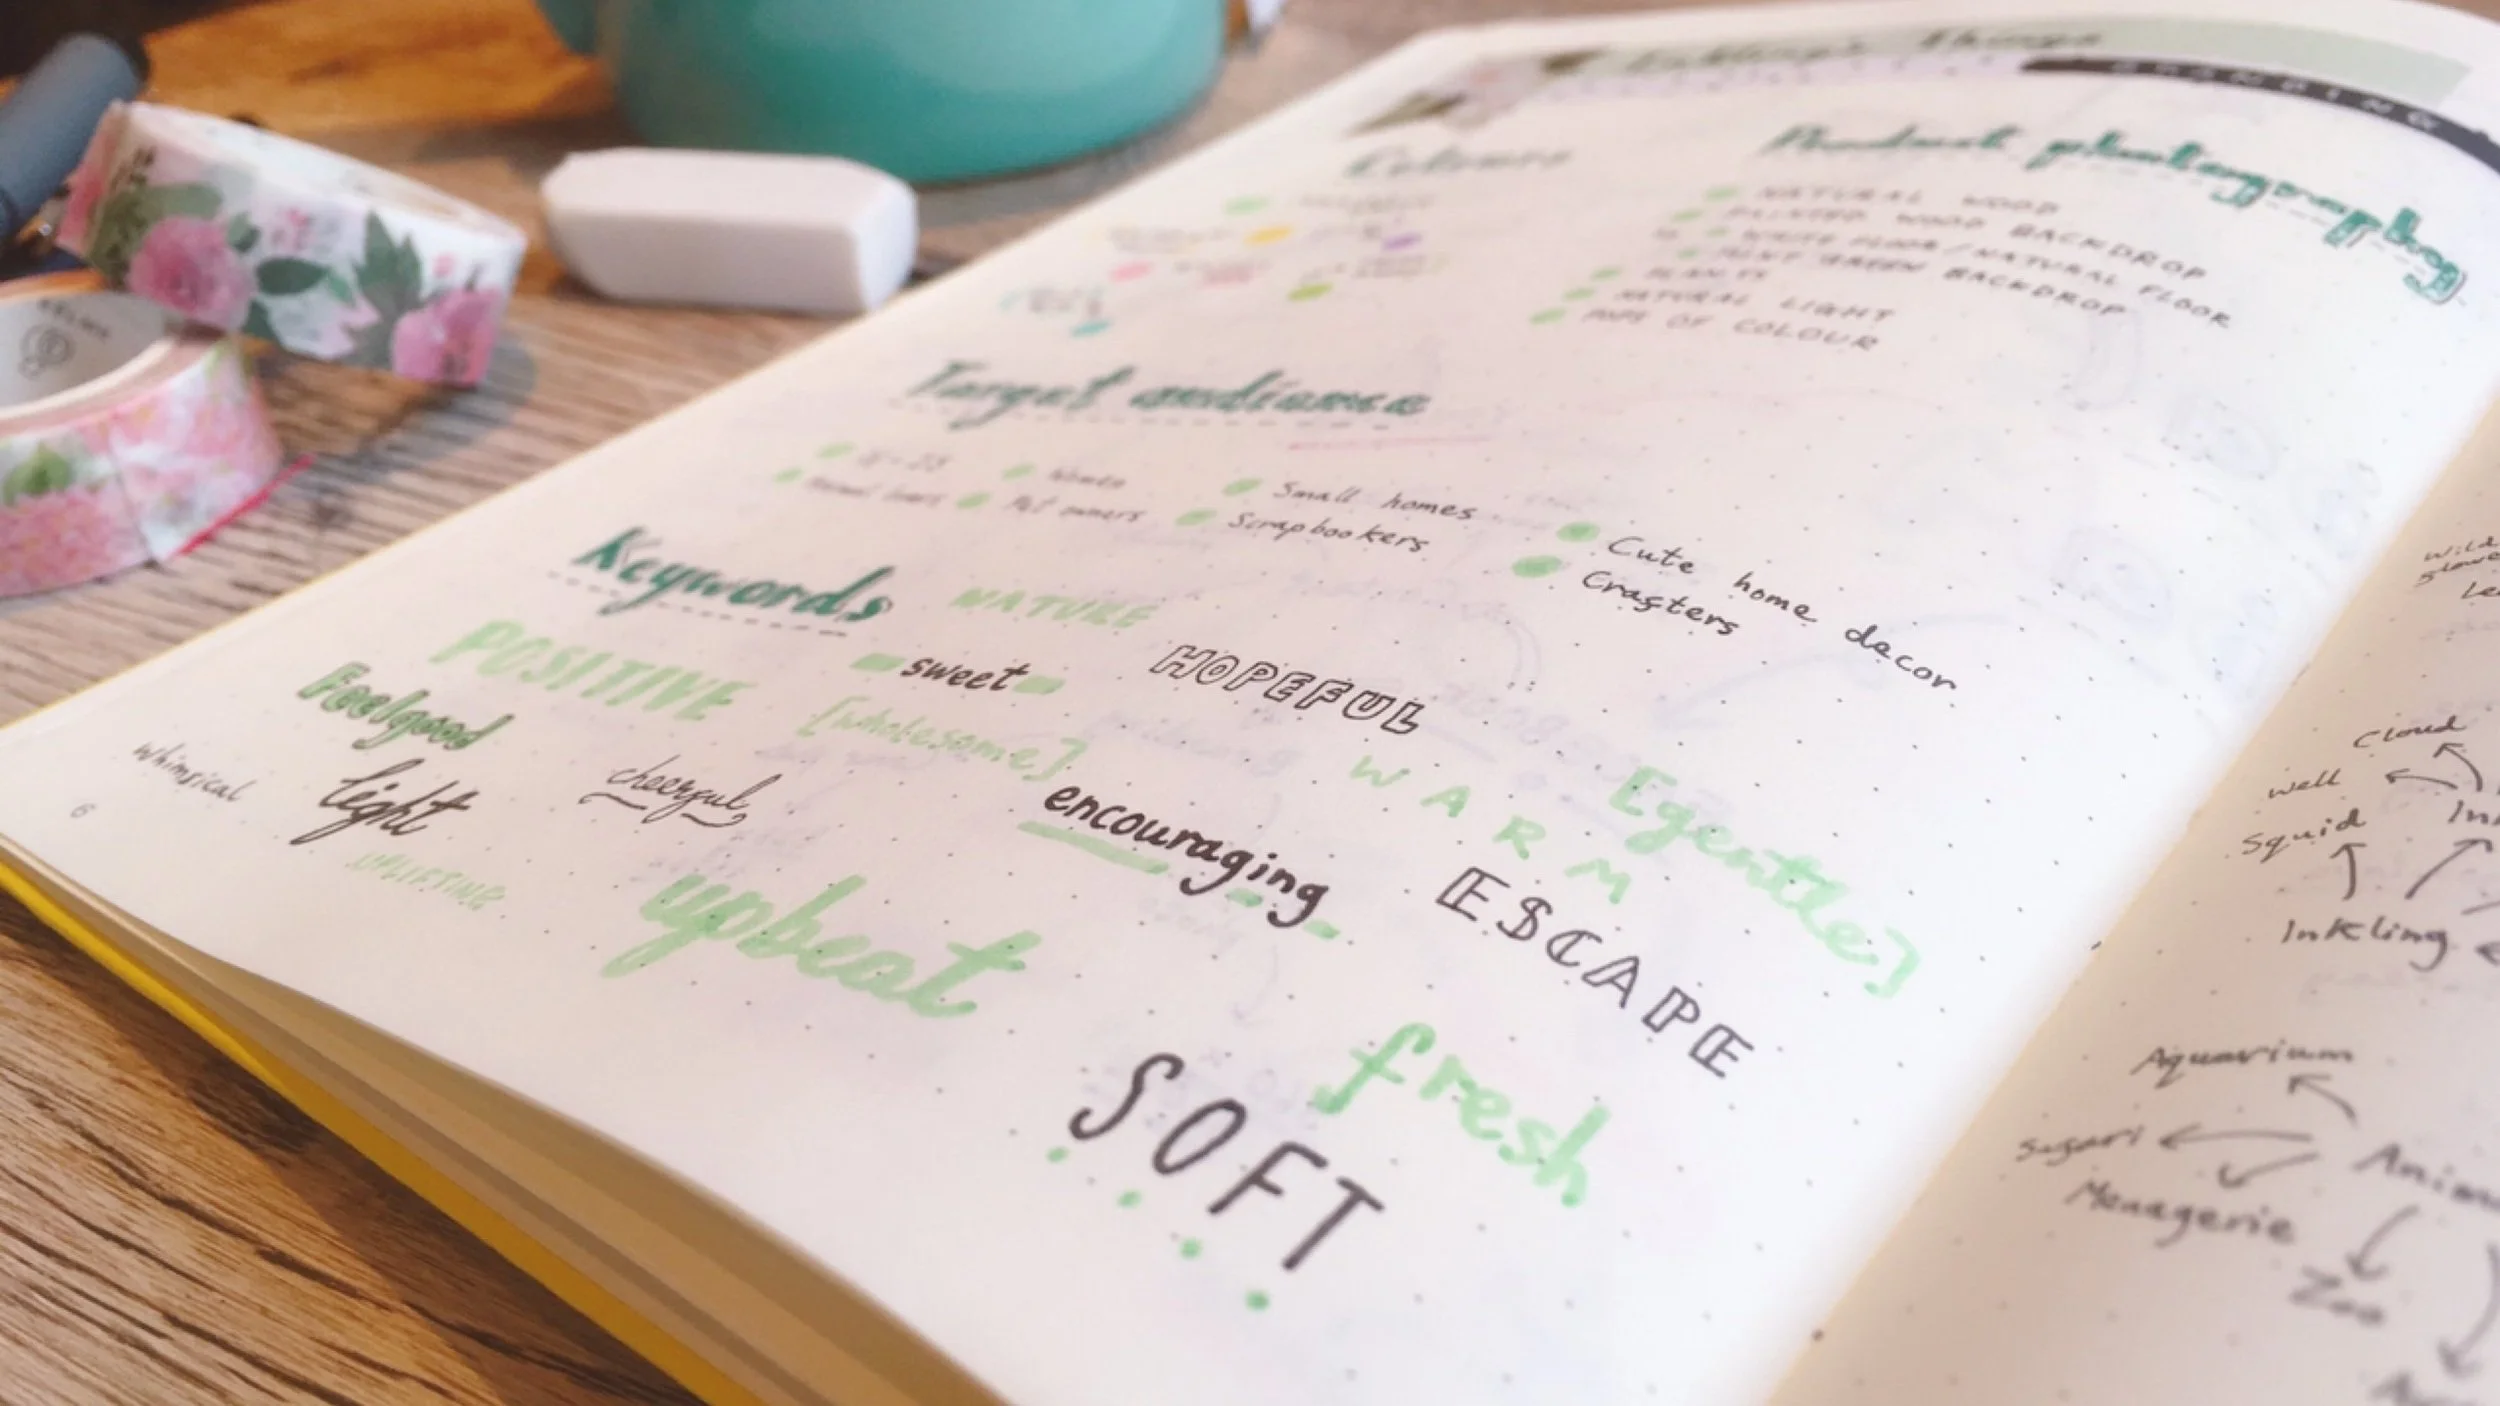 Things
BRANDING
Colours
Product photography
NATURAL WOOD
PAINTED WOOD BACKDROP
WHITE FLOOR/NATURAL FLOOR
MINT GREEN BACKDROP
PLANTS
NATURAL LIGHT
POPS OF COLOUR
Target audience
Women
Small homes
Cute home decor
Animal lovers
Pet owners
Scrapbookers
Crafters
Keywords
NATURE
POSITIVE
sweet
HOPEFUL
Feelgood
[wholesome]
WARM
[gentle]
whimsical
light
cheerful
encouraging
ESCAPE
UPLIFTING
upbeat
fresh
SOFT
6
Cloud
Well
Squid
Inkling
Aquarium
Safari
Menagerie
Zoo